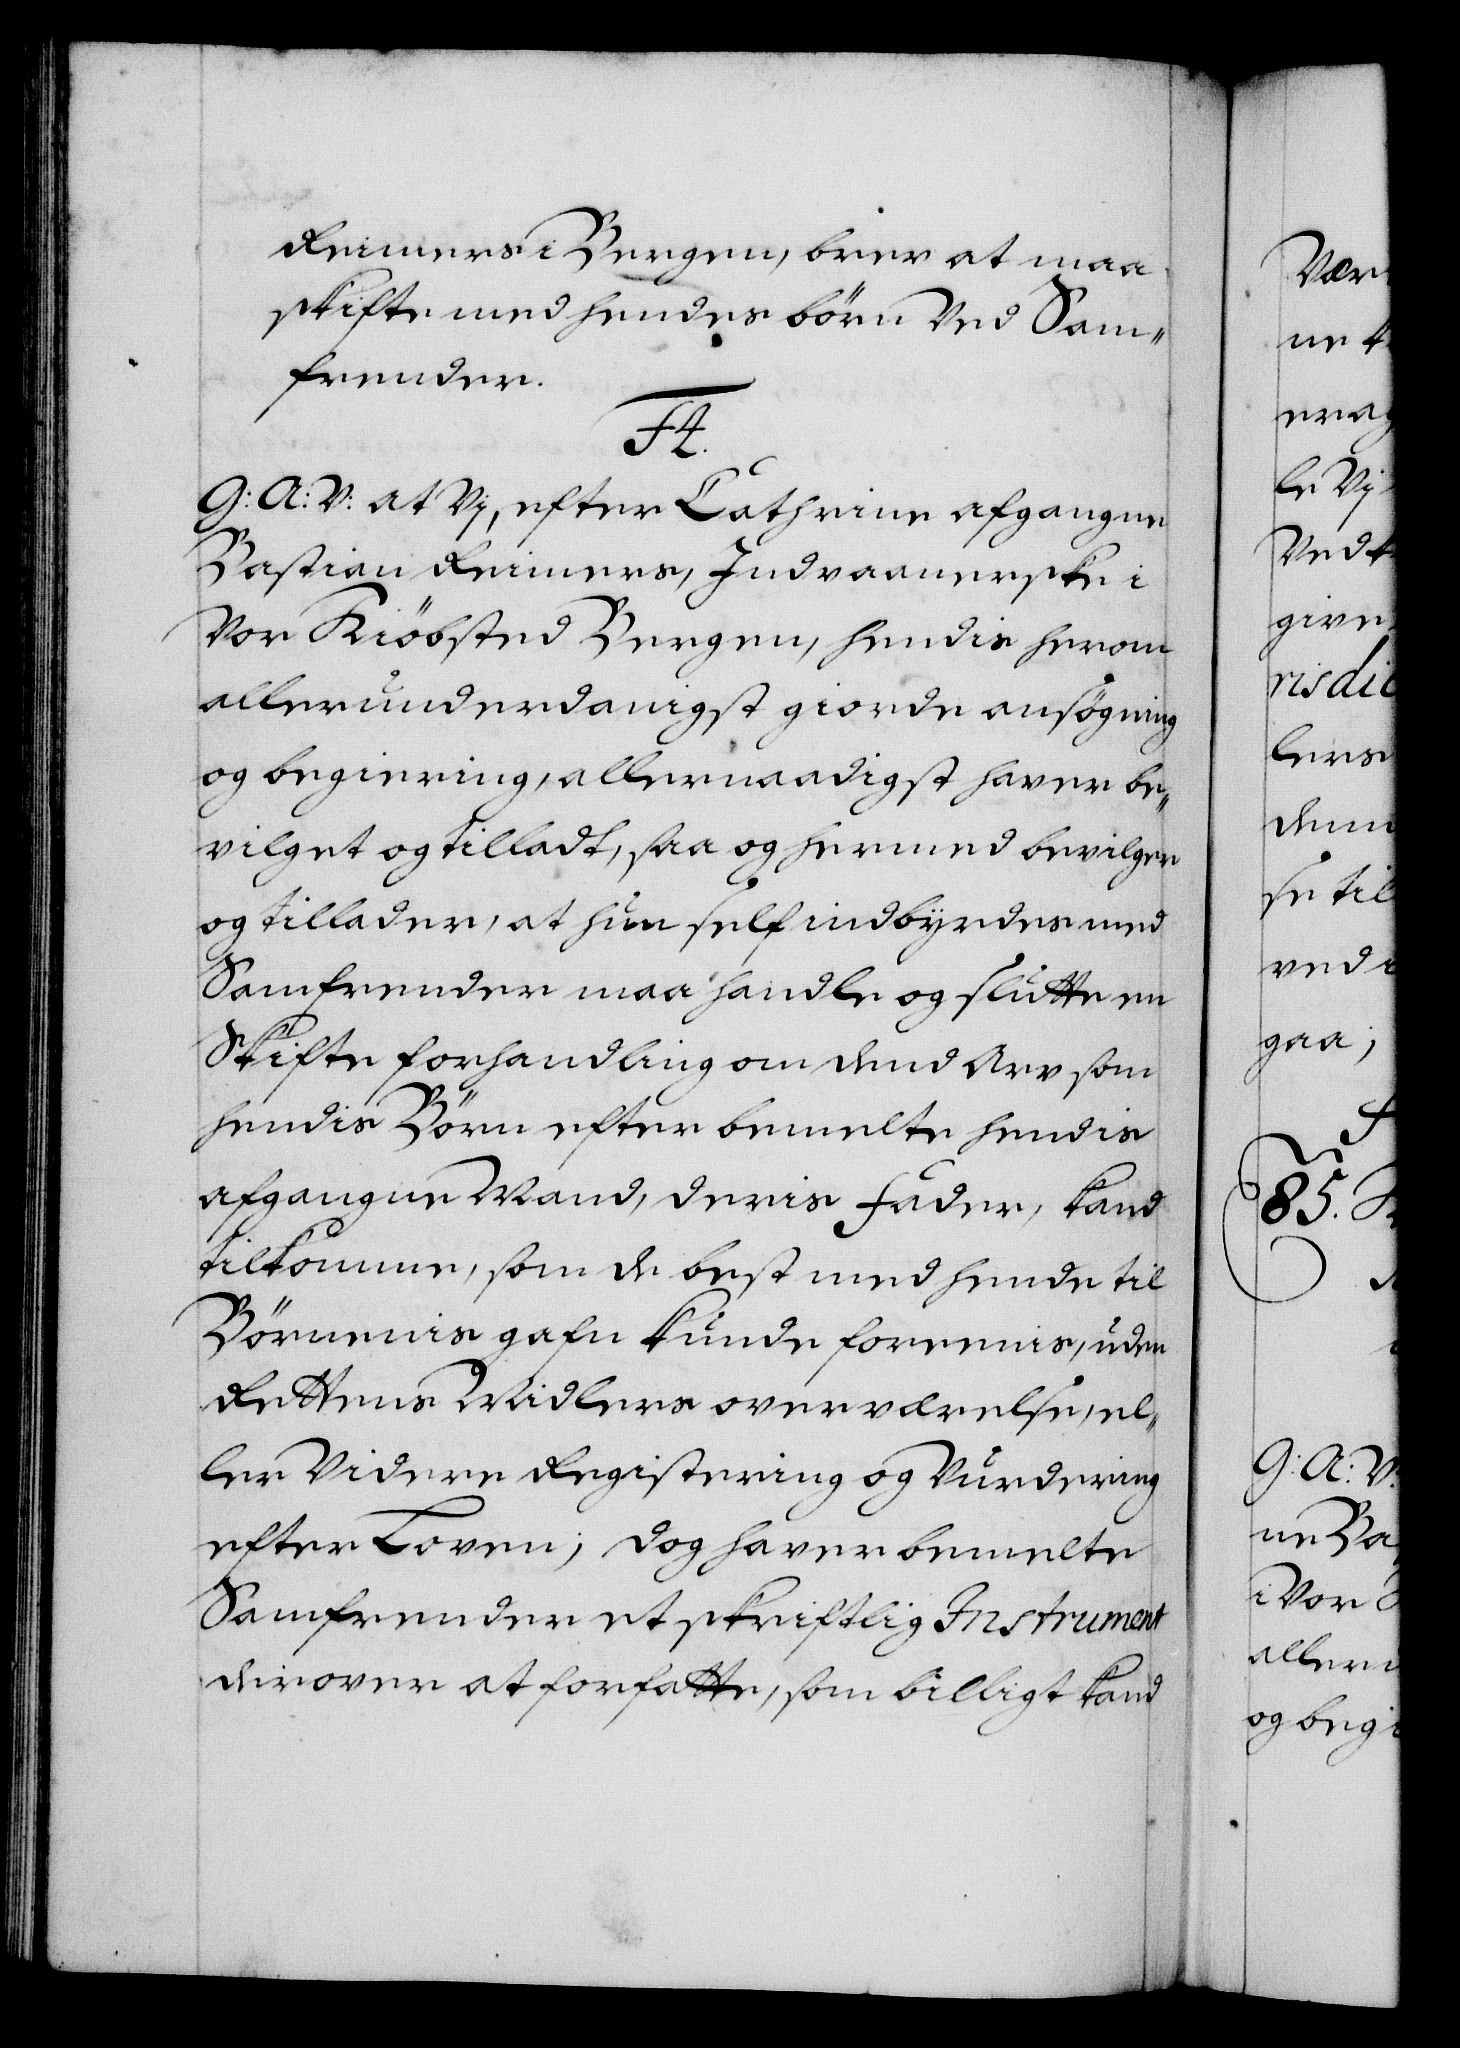 Reimers i Bergen, brev at maa
skifte med hendes börn ved Sam„
frender.
F4.
G: A: V: at Vj, efter Cathrine afgangne
Bastian Reimers, Indvaanerske i
Vor Kiöbsted Bergen, hendis herom
allerunderdanigst giorde ansögning
og begiering, allernaadigst haver be„
vilget og tilladt, saa og hermed bevilger
og tillader, at hun self indbyrdes med
Samfrender maa handle og slutte en
Skifte forhandling om dend Arv som
hendis Börn efter bemelte hendis
afgangne Mand, deris Fader, kand
tilkomme, som de best med hende til
Börnenis gafn kunde foreenis, uden
Rettens Midlers overværelse, el„
ler Videre Registering og Vurdering
efter Loven; dog haver bemelte
Samfrender et skriftlig Instrument
derover at forfatte, som billigt kand
Vær
ne
erag
le Vj
Ved
give
risdic
lers
denn
se til
ved
gaa;
85.
G: A: V:
ne Ba
i Vor
aller
og begi